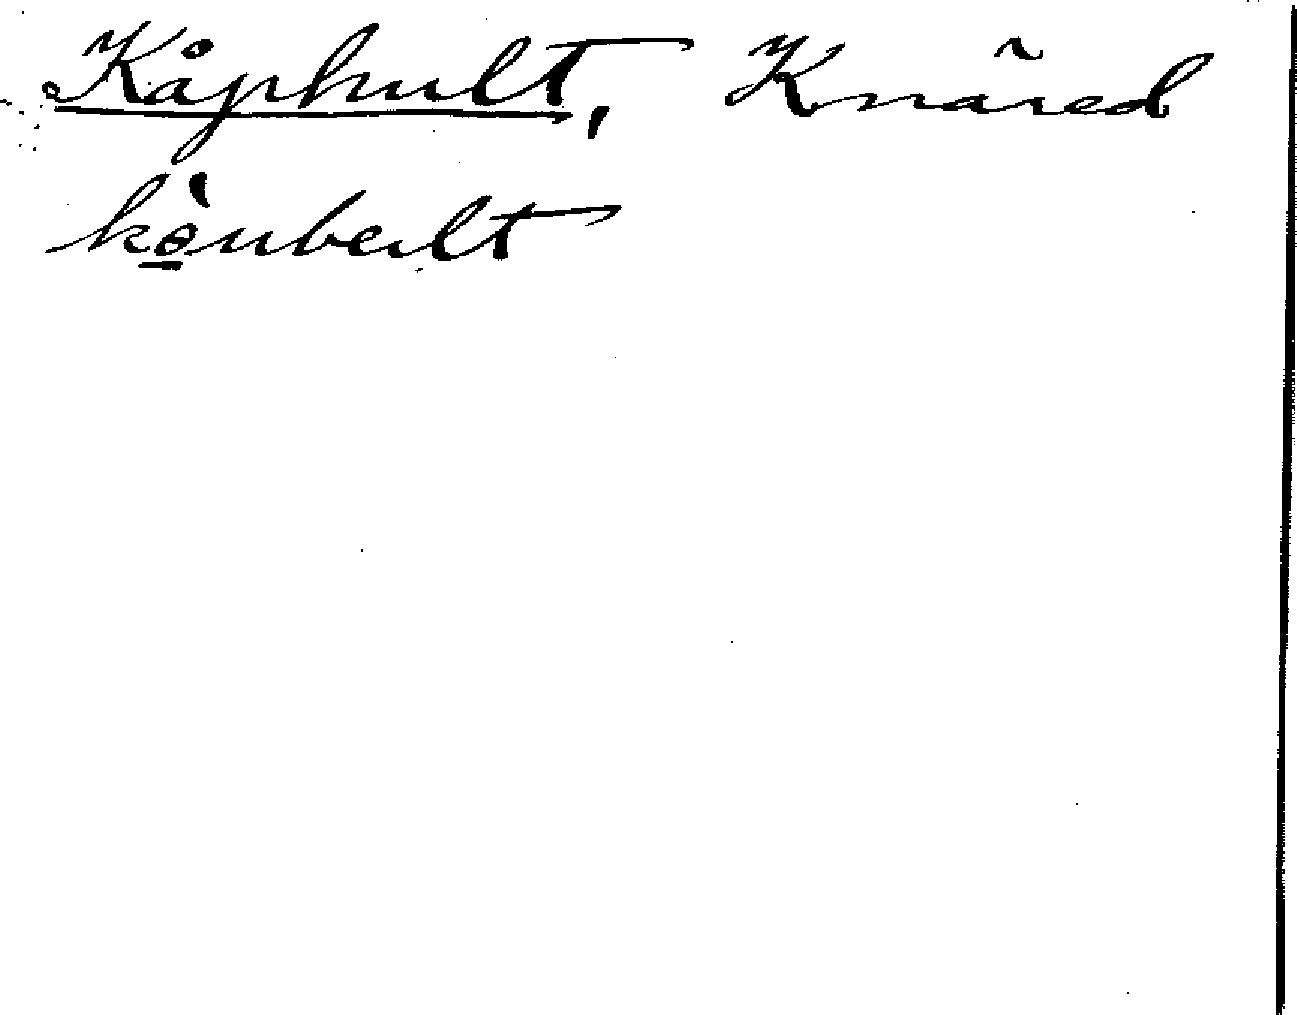 Kåphult, Knäred
kòubealt